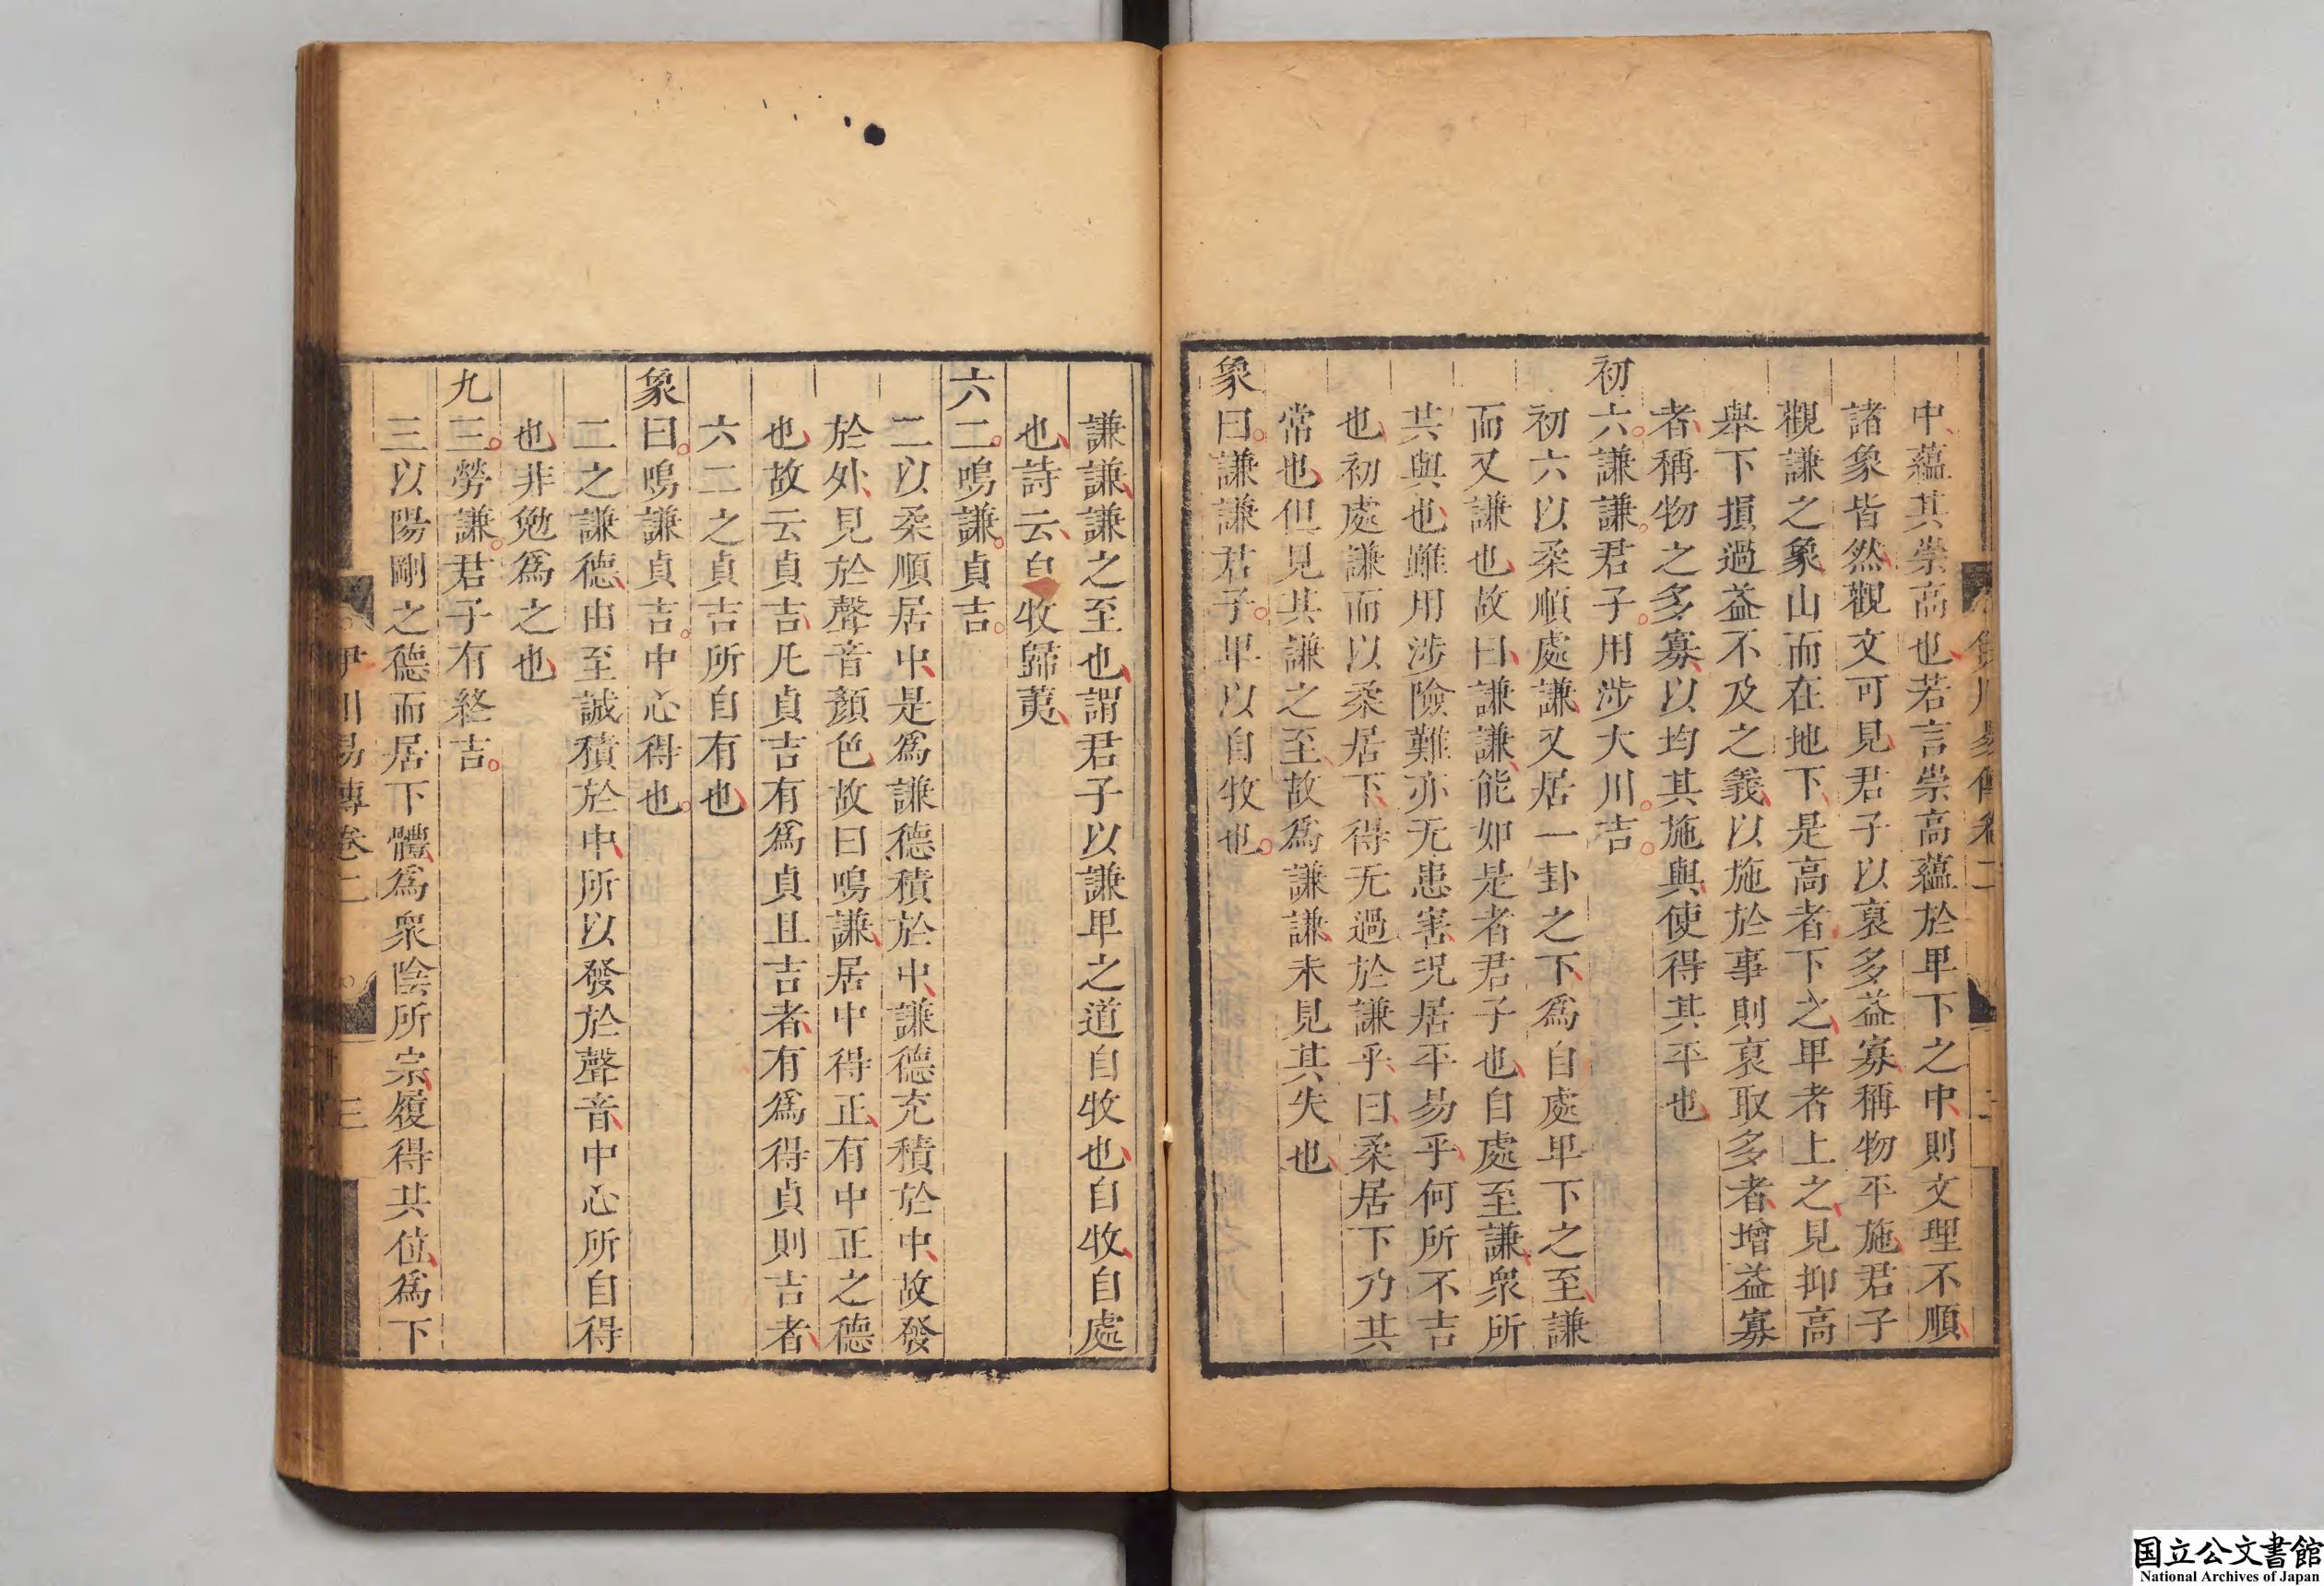 中蘊其崇高也若言崇高蘊於卑下之中則文理不順
諸象皆然觀文可見君子以裒多益寡稱物平施君子
觀謙之象山而在地下是高者下之卑者上之見抑高
舉下損過益不及之義以施於事則裒取多者增益寡
者稱物之多寡以均其施與使得其平也
初六謙謙君子用涉大川吉
初六以柔順處謙又居一卦之下爲自處卑下之至謙
而又謙也故曰謙謙能如是者君子也自處至謙衆所
共與也雖用涉險難亦无患害况居平易乎何所不吉
也初處謙而以柔居下得无過於謙乎曰柔居下乃其
常也但見其謙之至故爲謙謙未見其失也
象曰謙謙君子卑以自牧也
謙謙謙之至也謂君子以謙卑之道自牧也自牧自處
也詩云自牧歸荑
六二鳴謙貞吉
二以柔順居中是爲謙德積於中謙德充積於中故發
於外見於聲音顏色故曰鳴謙居中得正有中正之德
也故云貞吉凡貞吉有爲貞且吉者有爲得貞則吉者
六二之貞吉所自有也
象曰鳴謙貞吉中心得也
二之謙德由至誠積於中所以發於聲音中心所自得
也非勉爲之也
九三勞謙君子有終吉
三以陽剛之德而居下體爲衆陰所宗履得其位爲下
伊川易傳卷二
三
国立公文書館
National Archives of Japan